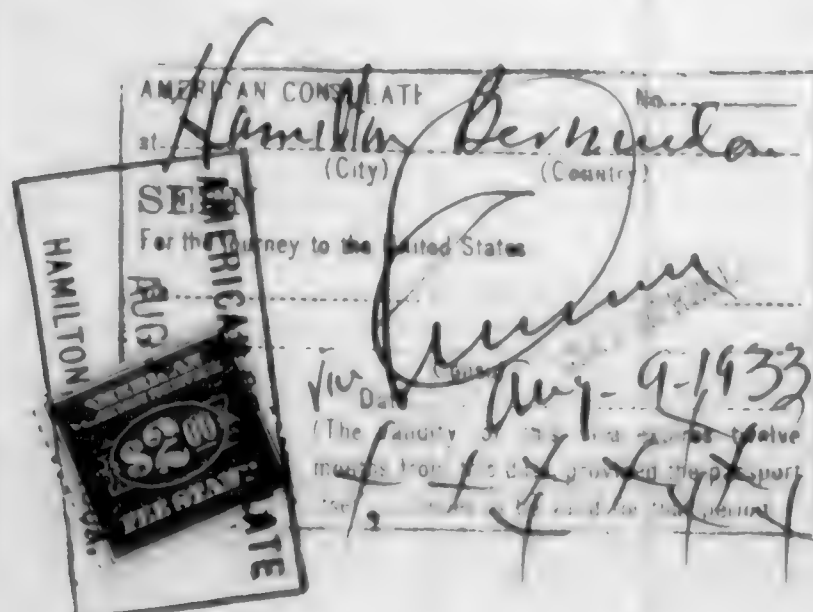 AMERICAN CONSULATE No.
at Hamilton Bermuda
(City) (Country)
SEEN
For the journey to the United States
Date Aug- 9-1933
(The validity of this visa expires twelve
months from this date provided the passport
period
AMERICAN CONSULATE
AUG
HAMILTON
AMERICAN
$2.00
FEE STAMP